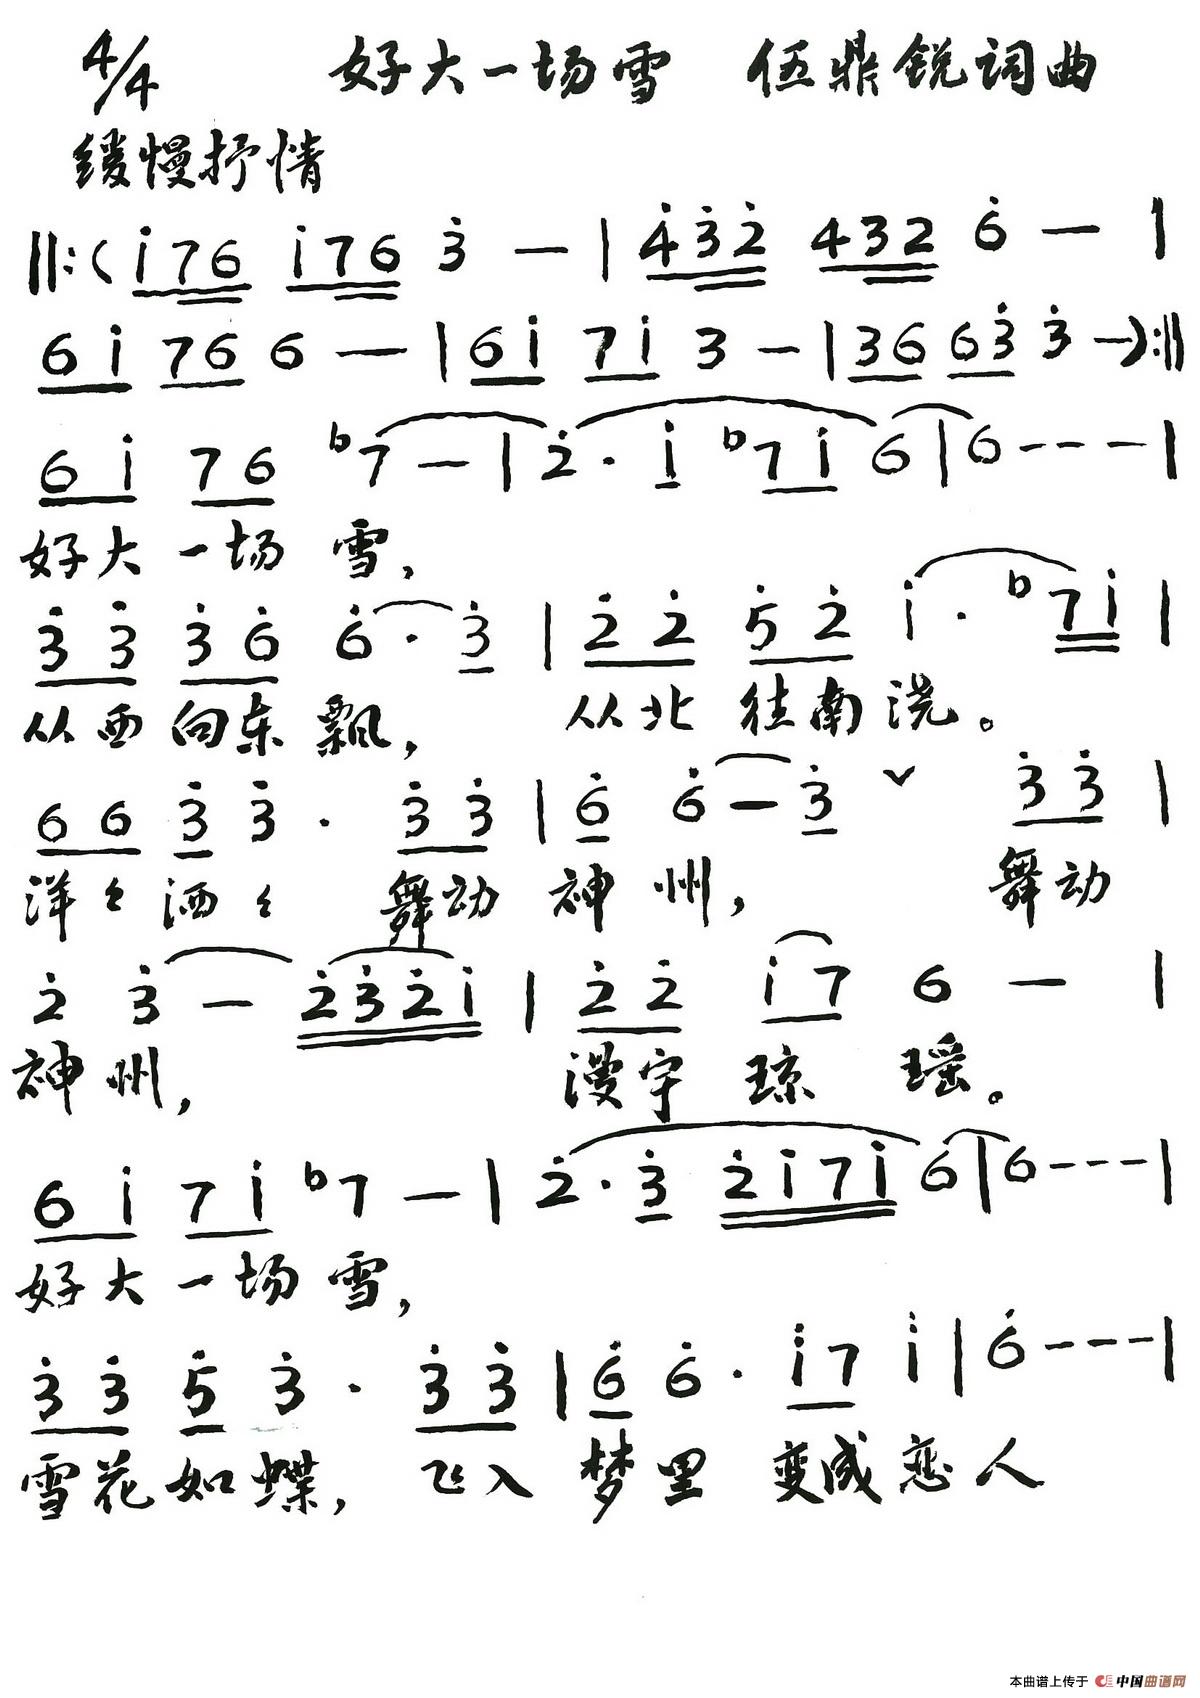 4/4 好大一场雪 伍鼎锐词曲
缓慢抒情
‖:(i̇76 i̇76 3̇ — | 4̇3̇2̇ 432 6̇ — |
6i̇ 76 6 — | 6i̇ 7i̇ 3 — | 36 63̇ 3̇ —):‖
6i̇ 76 b7 — | 2̇· i̇ b7i̇ 6 | 6 - - - |
好大 一场 雪，
3̇3̇ 3̇6̇ 6̇· 3̇ | 2̇2̇ 5̇2̇ i̇· b7i̇ |
从西 向东 飘， 从北 往南 浇。
66 3̇ 3̇· 3̇3̇ | 6̇ 6̇ — 3̇ ∨ 3̇3̇ |
洋々洒々 舞动 神州， 舞动
2̇ 3̇ — 2̇3̇2̇i̇ | 2̇2̇ i̇7 6 — |
神州， 漫宇 琼 瑶。
6i̇ 7i̇ b7 — | 2̇· 3̇ 2̇i̇7i̇ 6 | 6 - - - |
好大 一场 雪，
3̇3̇ 5̇ 3̇· 3̇3̇ | 6̇ 6̇· i̇7 i̇ | 6̇ - - - |
雪花 如蝶， 飞入 梦里 变成恋人
本曲谱上传于 中国曲谱网